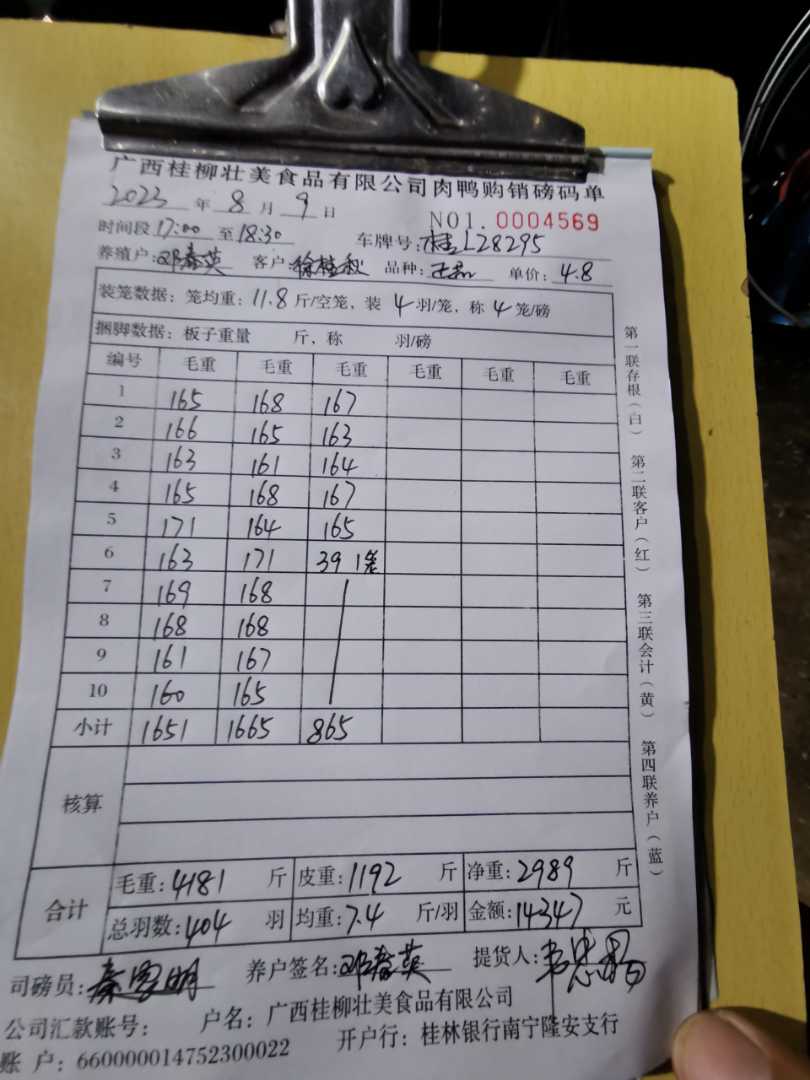 广西桂柳壮美食品有限公司肉鸭购销磅码单
2023 年 8 月 9 日 NO1. 0004569
时间段 17:00 至 18:30 车牌号: 桂L28295
养殖户: 邓春英 客户: 徐桂秋 品种: 单价: 4.8
装笼数据: 笼均重: 11.8 斤/空笼, 装 4 羽/笼, 称 4 笼/磅
捆脚数据: 板子重量 斤, 称 羽/磅
编号 毛重 毛重 毛重 毛重 毛重 毛重
1 165 168 167
2 166 165 163
3 163 161 164
4 165 168 167
5 171 164 165
6 163 171 39 1笼
7 169 168
8 168 168
9 161 167
10 160 165
小计 1651 1665 865
核算
合计
毛重: 4181 斤 皮重: 1192 斤 净重: 2989 斤
总羽数: 404 羽 均重: 7.4 斤/羽 金额: 14347 元
司磅员: 养户签名: 邓春英 提货人:
公司汇款账号: 户名: 广西桂柳壮美食品有限公司
账 户: 660000014752300022 开户行: 桂林银行南宁隆安支行
第一联存根(白) 第二联客户(红) 第三联会计(黄) 第四联养户(蓝)